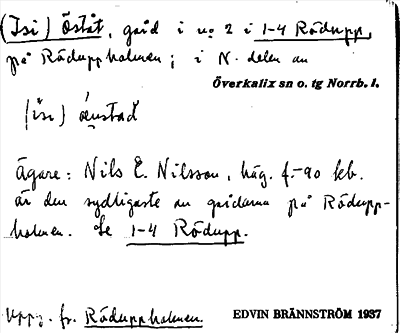 (Isi) Öståt, gård i no 2 i 1-4 Rödupp,
på Röduppholmen; i N. delen av
Överkalix sn o. tg Norrb. l.
(isi)
Ägare: Nils E. Nilsson, häg. f.-90 kb.
är den sydligaste av gårdarna på Rödupp-
holmen. Se 1-4 Rödupp.
Uppg. fr. Röduppholmen.
EDVIN BRÄNNSTRÖM 1937